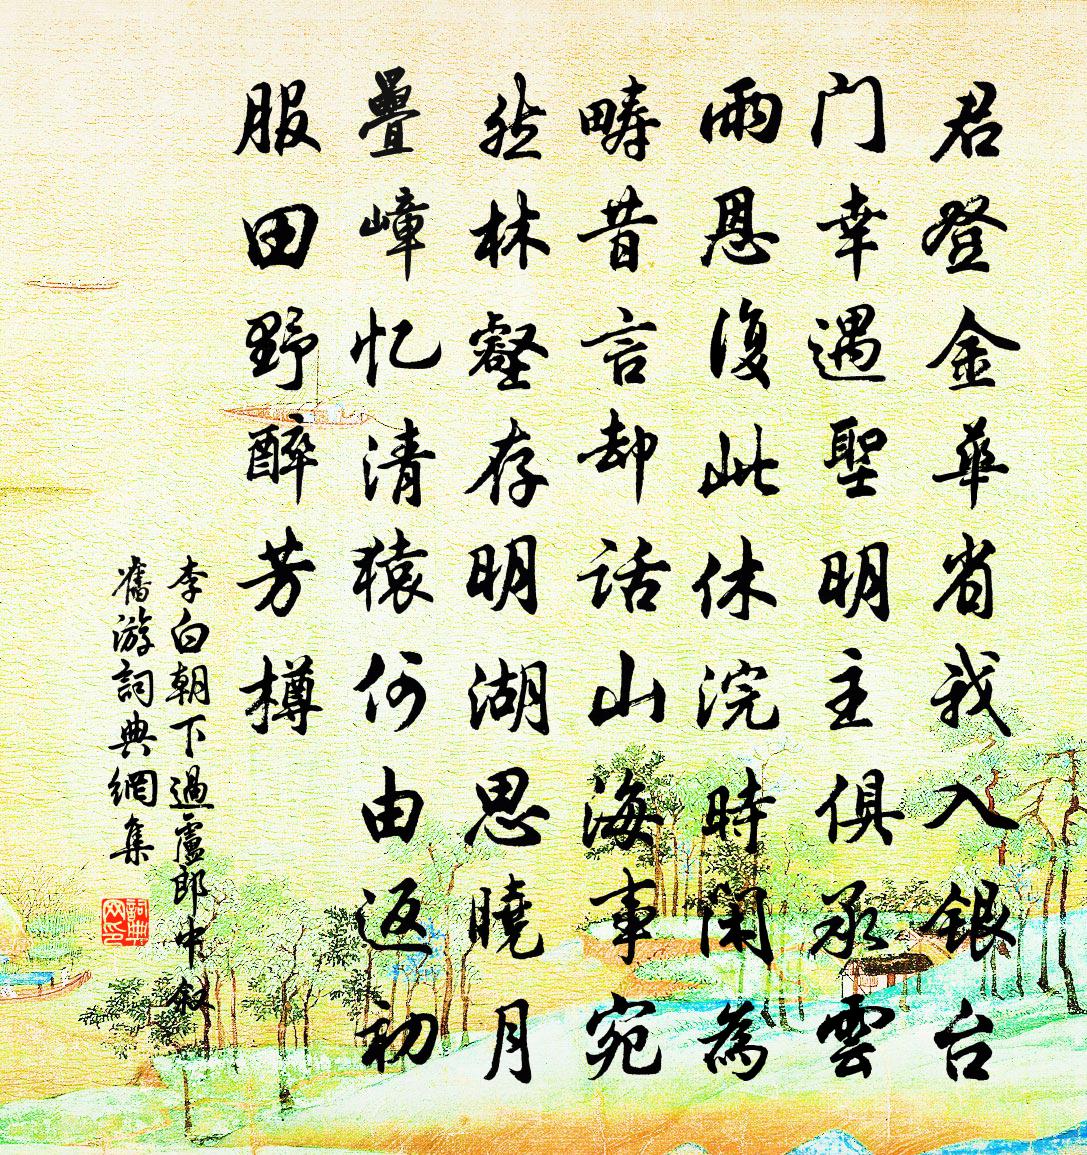 君登金華省我入銀台
门幸遇聖明主俱承雲
雨恩復此休浣時闲為
疇昔言却話山海事宛
然林壑存明湖思曉月
疊嶂忆清猿何由返初
服田野醉芳樽
李白朝下過盧郎中叙
舊游詞典網集
詞典网印